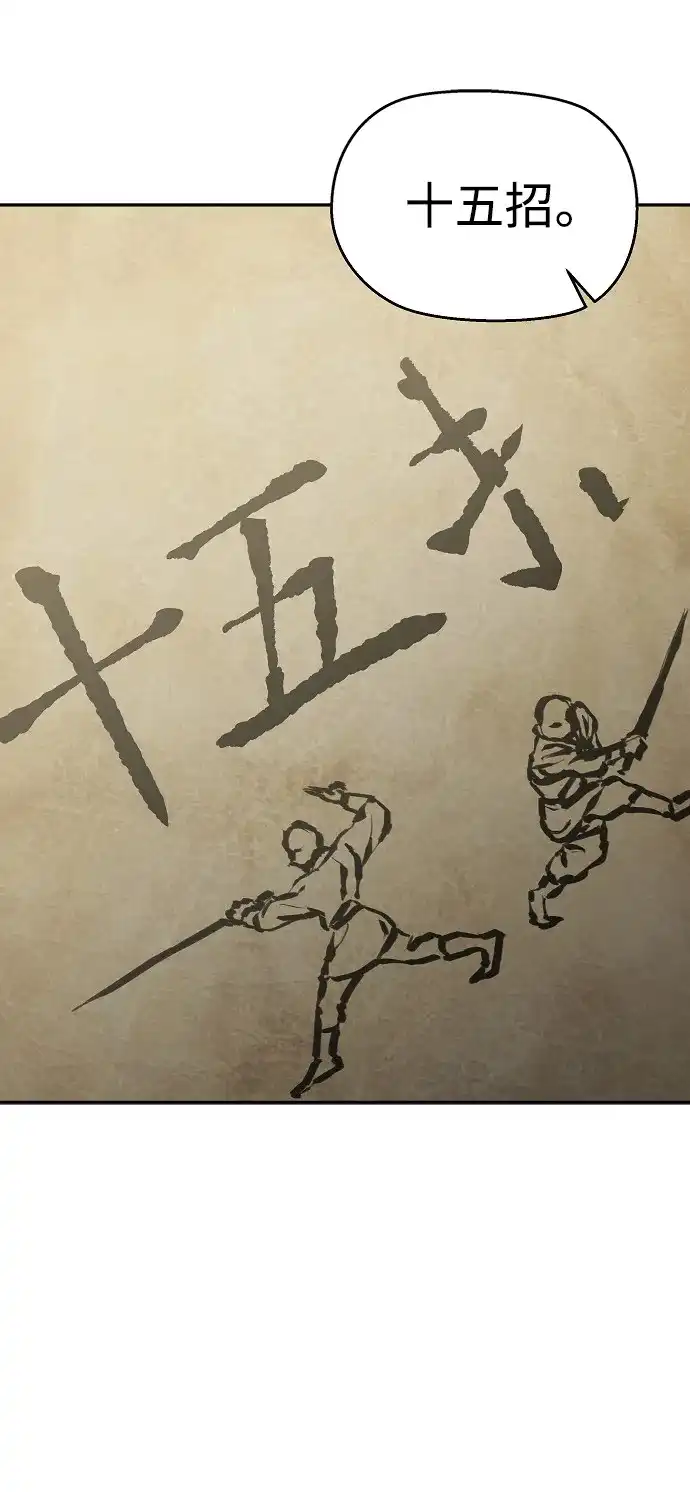 十五招。
十五